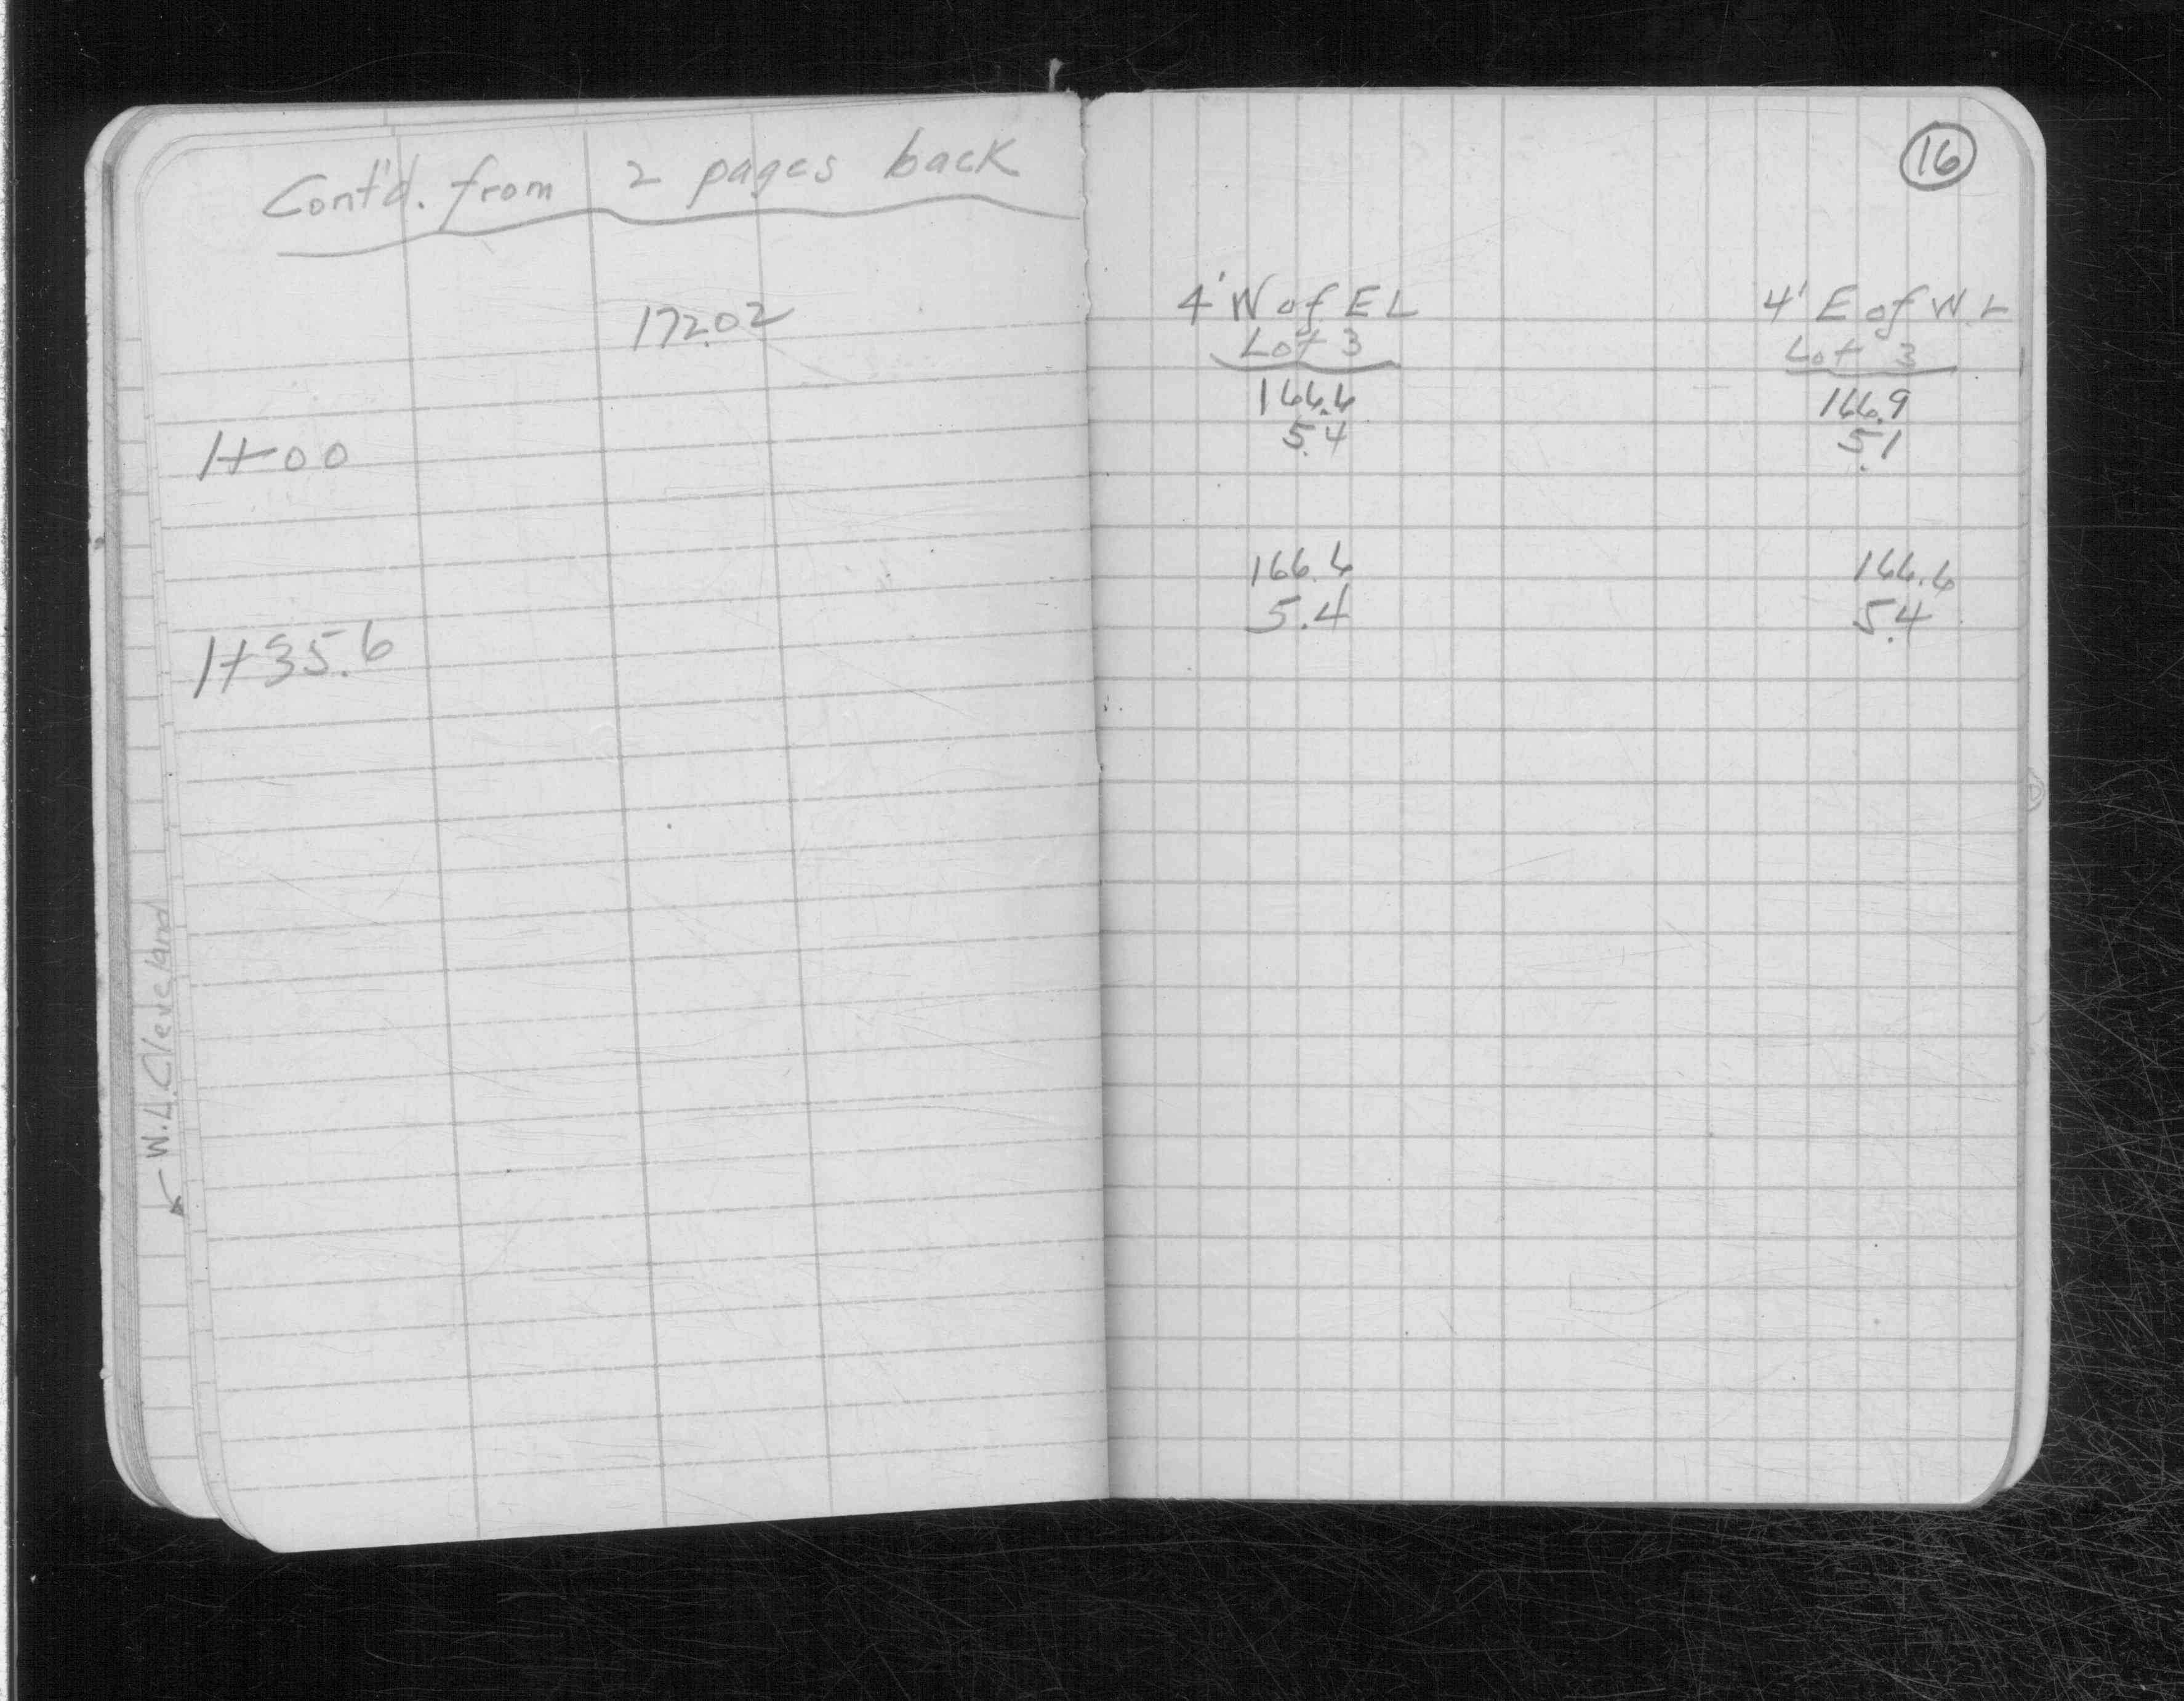 Cont'd. from 2 pages back
172.02
1+00
1+35.6
W.L. Cleveland
16
4' W of E L
Lot 3
166.6
5.4
166.6
5.4
4' E of W.L
Lot 3
166.9
5.1
166.6
5.4